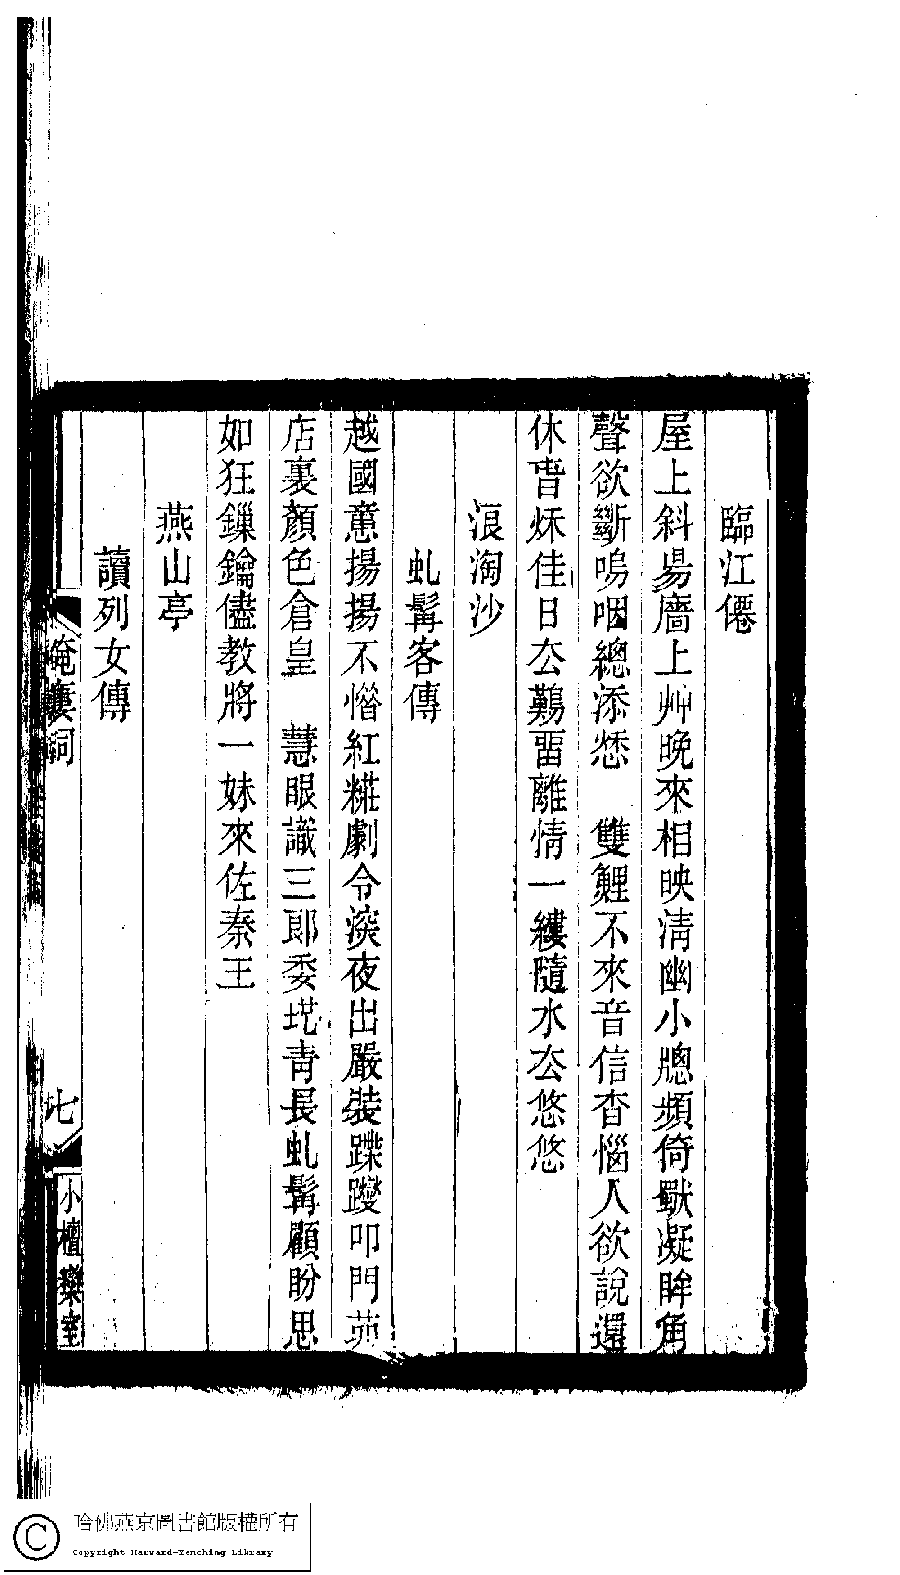 臨江僊
屋上斜昜牆上艸晚來相映清幽小牎頻倚獸凝眸角
聲欲斷嗚咽總添愁　雙鯉不來音信杳惱人欲說還
休昔秌佳日厺難畱離情一縷隨水厺悠悠
浪淘沙
虬髯客傳
越國意揚揚不惜紅糚劇令深夜出嚴裝蹀躞叩門茆
店裏顏色倉皇　慧眼識三郎委地青長虬髯顧盼思
如狂鏁鑰儘教將一妹來佐秦王
燕山亭
讀列女傳
詞
七
小檀欒室
哈佛燕京圖書館版權所有
Copyright Harvard-Yenching Library